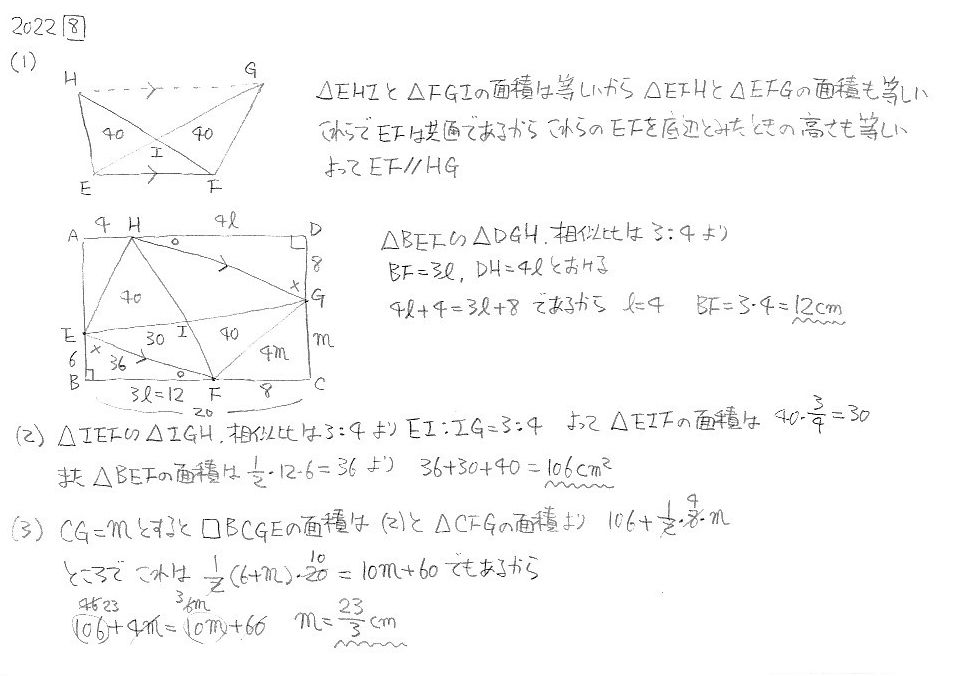 2022 8
(1)
H G
40 40
I
E F
△EHIと△FGIの面積は等しいから △EFHと△EFGの面積も等しい
これらでEFは共通であるから これらのEFを底辺とみたときの高さも等しい
よってEF//HG
4 H 4l
A D
8
G
40
E I
30 40 m
6 36 4m
B F C
3l=12 8
20
△BEF∽△DGH.相似比は3:4より
BF=3l, DH=4lとおける
4l+4=3l+8 であるから l=4 BF=3・4=12cm
(2) △IEF∽△IGH.相似比は3:4より EI:IG=3:4 よって △EIFの面積は 40・3/4=30
また △BEFの面積は 1/2・12・6=36 より 36+30+40=106cm²
(3) CG=mとすると □BCGEの面積は (2)と △CFGの面積より 106+1/2・8・m 4
ところで これは 1/2(6+m)・20 10 =10m+60 でもあるから
46 23 3 6m
106+4m=10m+60 m=23/3cm